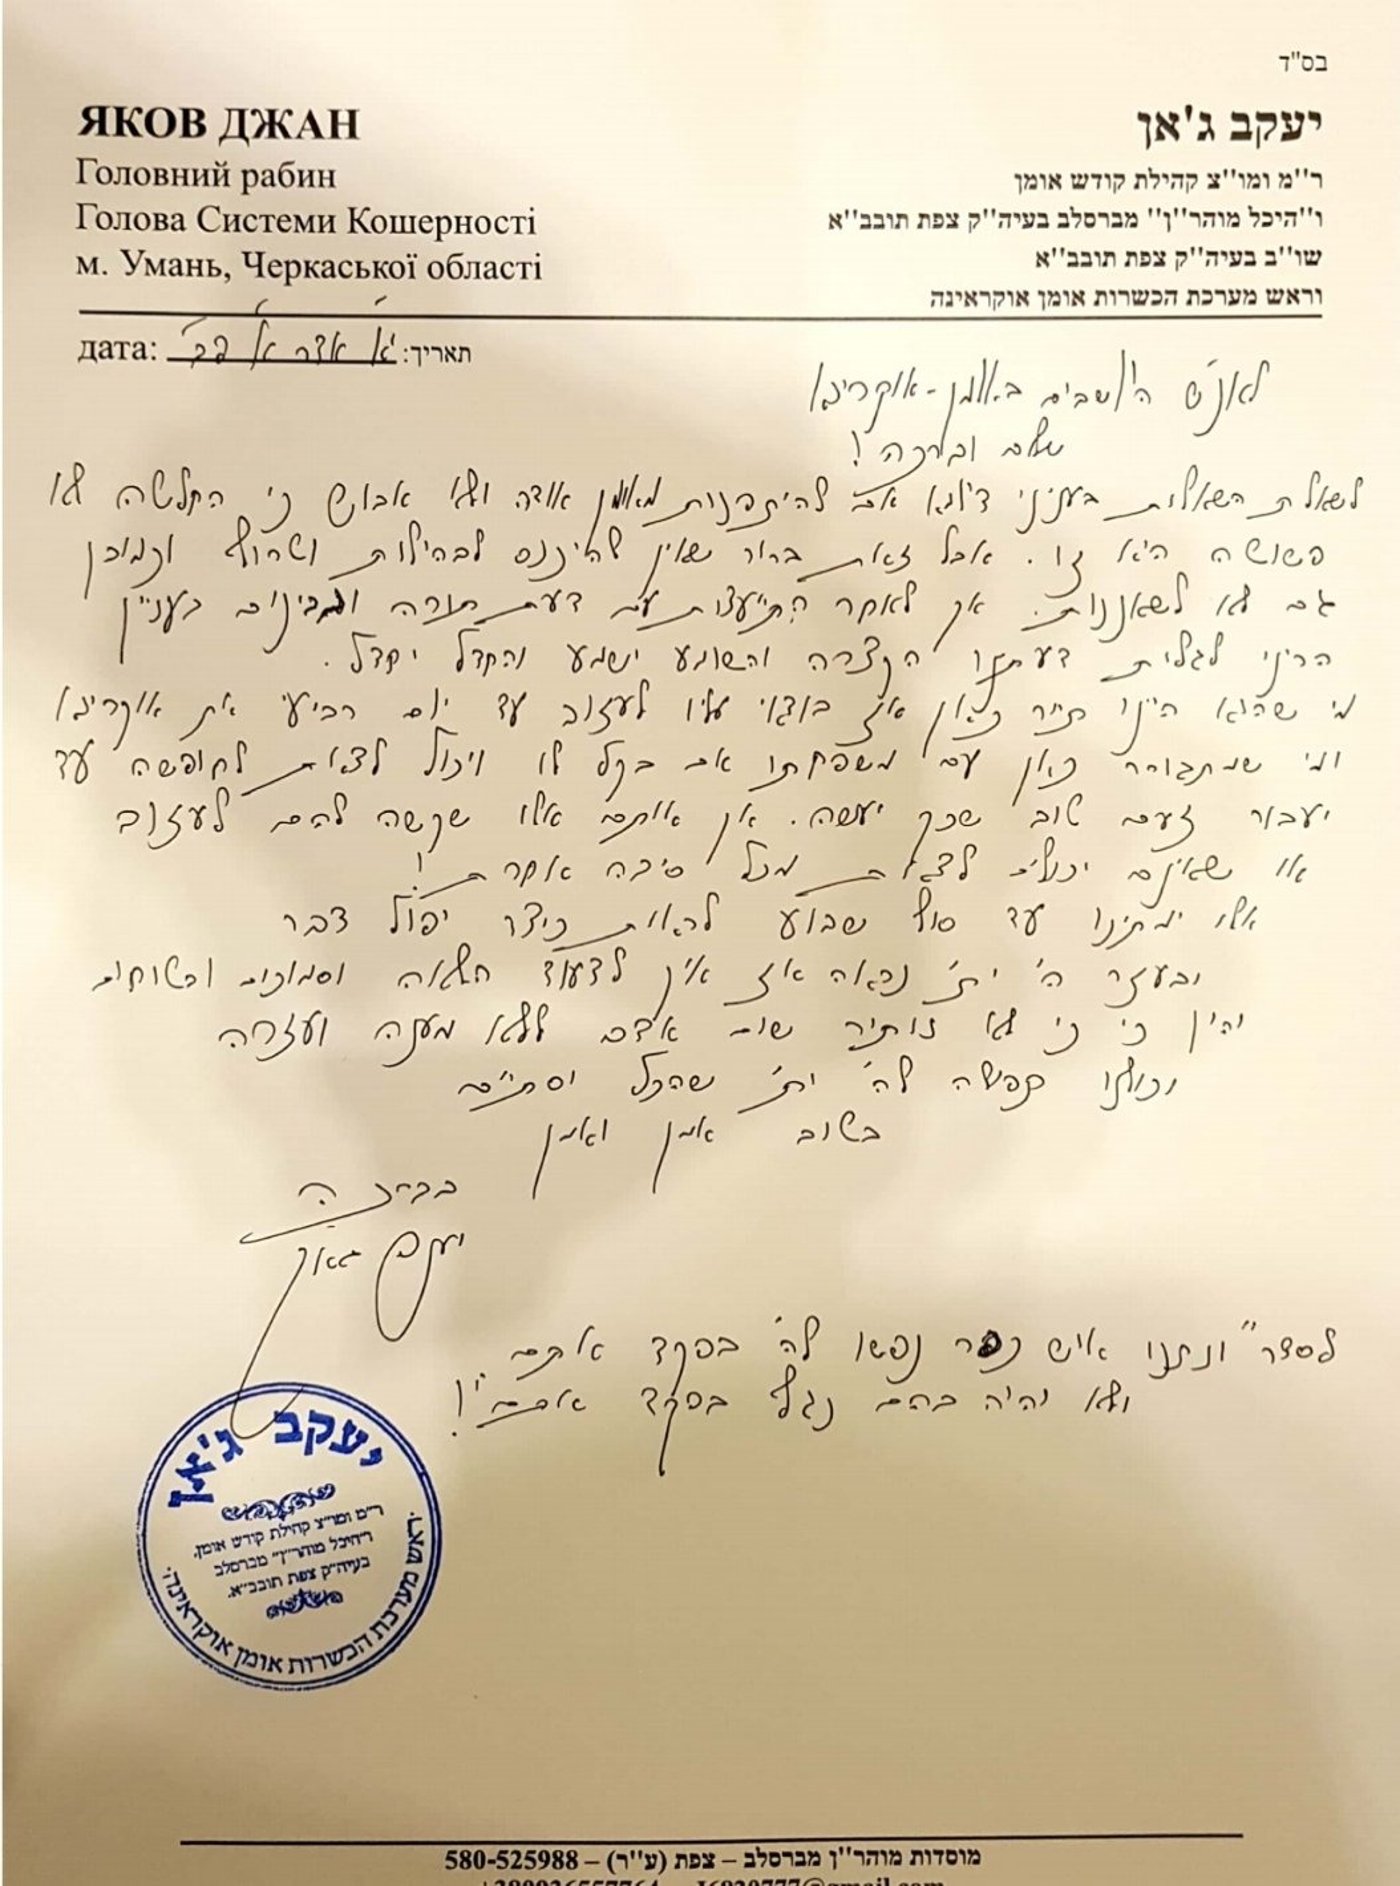 בס"ד
ЯКОВ ДЖАН
Головний рабин
Голова Системи Кошерності
м. Умань, Черкаської області
יעקב ג'אן
ר''מ ומו''צ קהילת קודש אומן
ו''היכל מוהר''ן'' מברסלב בעיה''ק צפת תובב''א
שו''ב בעיה''ק צפת תובב''א
וראש מערכת הכשרות אומן אוקראינה
дата: תאריך: י"א אדר א' פב'
לאנ"ש היושבים באומן - אוקריינא
שלום וברכה!
לשאלת השאלות בעניני דיומא אם להתפנות מאומן אודה ולא אבוש כי החלטה לא
פשוטה היא זו. אבל זאת ברור שאין להיכנס לבהילות וטרוף וכמובן
גם לא לשאננות. אך לאחר התייעצות עם דעת תורה ומבינים בעניין
הריני לגלות דעתנו הקצרה והשומע ישמע והחדל יחדל.
מי שהוא הינו תייר כאן אז בודאי עליו לעזוב עד יום רביעי את אוקריינא
ומי שמתגורר כאן עם משפחתו אם בקל לו ויכול לצאת לחופשה עד
יעבור זעם טוב שכך יעשה. אך אותם אלו שקשה להם לעזוב
או שאינם יכולים לצאת מכל סיבה אחרת!
אלו ימתינו עד סוף שבוע לראות כיצד יפול דבר
ובעזר ה' ית' נראה אז איך לצעוד הלאה
כי לא נותיר שום אדם ללא מענה ועזרה
וכולנו תפילה לה' ית' שהכל יסתיים
בטוב אמן ואמן
יעקב גאן
לסדר "ונתנו איש כפר נפשו לה' בפקד אתם
ולא יהיה בהם נגף בפקד אתם"!
יעקב ג'אן
ר"מ ומו"צ קהילת קודש אומן,
ו"היכל מוהר"ן" מברסלב
בעיה"ק צפת תובב"א.
וראש מערכת הכשרות אומן אוקראינה.
מוסדות מוהר''ן מברסלב – צפת (ע''ר) – 580-525988